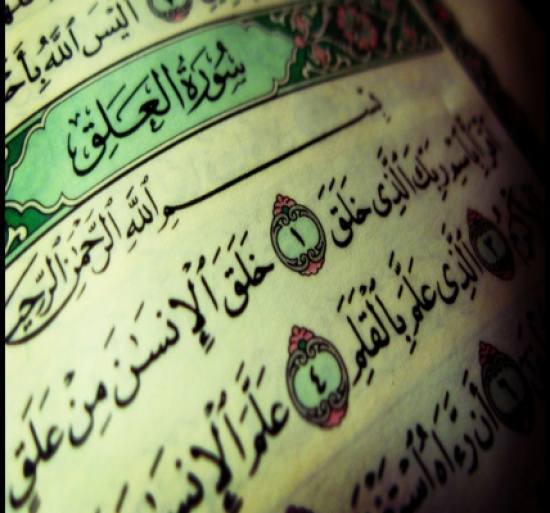 أَلَيْسَ ٱللَّهُ
سُورَةُ الْعَلَقِ
بِسْمِ ٱللَّهِ ٱلرَّحْمَٰنِ
ٱقْرَأْ بِٱسْمِ رَبِّكَ ٱلَّذِى خَلَقَ ١ خَلَقَ ٱلْإِنسَٰنَ مِنْ عَلَقٍ
٣ ٱلَّذِى عَلَّمَ بِٱلْقَلَمِ ٤ عَلَّمَ ٱلْإِنسَٰنَ
٦ أَن رَّءَاهُ